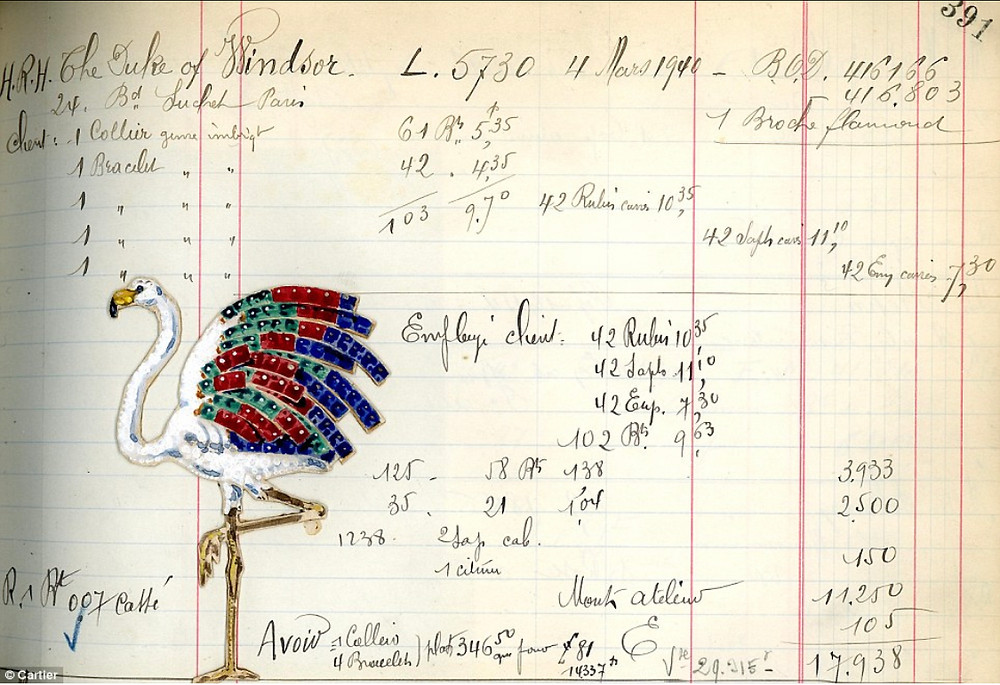 391
H.R.H. The Duke of Windsor. L. 5730 4 Mars 1940 - B.O.D. 416166
24. Bd Suchet Paris 416.803
Client: 1 Collier genre imbriqt 61 Bts 5,35 1 Broche flamand
1 Bracelet " " 42 . 4,35
1 " " " 103 9,70 42 Rubis carrés 10,35
1 " " " 42 Saph carrés 11,10
1 " " " 42 Em carrées 7,30
Employé client: 42 Rubis 10,35
42 Saphs 11,10
42 Em. 7,30
102 Bts 9,63
125 - 58 Bts 1,38 3.933
35. 21 1,04 2.500
1238. 2 Sap cab. 150
1 citrine
R. 1 Bt 007 Cassé Mont. atelier 11.250
105
Avoir 1 Collier
4 Bracelets plat 346,50 que pour £ 81
14337 fs
29.315 17.938
© Cartier